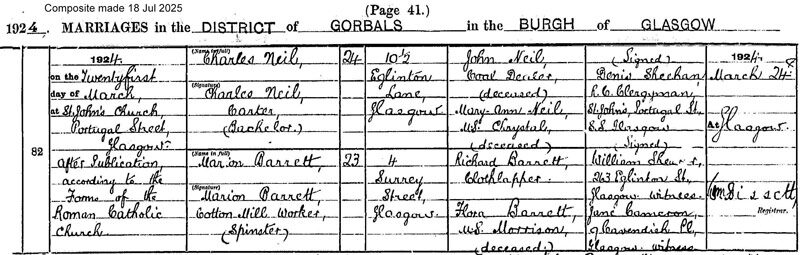 Composite made 18 Jul 2025
(Page 41.)
1924. MARRIAGES in the DISTRICT of GORBALS in the BURGH of GLASGOW
82
1924.
on the Twentyfirst
day of March,
at St John's Church,
Portugal Street,
Glasgow
After Publication,
according to the
Forms of the
Roman Catholic
Church
(Name in full)
Charles Neil,
(Signature)
Charles Neil,
Carter,
(Bachelor.)
(Name in full)
Marion Barrett,
(Signature)
Marion Barrett,
Cotton Mill Worker,
(Spinster)
24
23
10½
Eglinton
Lane,
Glasgow
4
Surrey
Street,
Glasgow
John Neil,
Coal Dealer,
(deceased)
Mary-Ann Neil,
M.S. Chrystal,
(deceased)
Richard Barrett,
Clothlapper.
Flora Barrett,
M.S. Morrison,
(deceased)
(Signed)
Denis Sheehan,
R.C. Clergyman,
St John's, Portugal St,
S.S. Glasgow
(Signed)
William
263 Eglinton St,
Glasgow. witness.
Jane Cameron,
9 Cavendish Pl,
Glasgow. witness
1924.
March 24
At Glasgow.
Registrar.